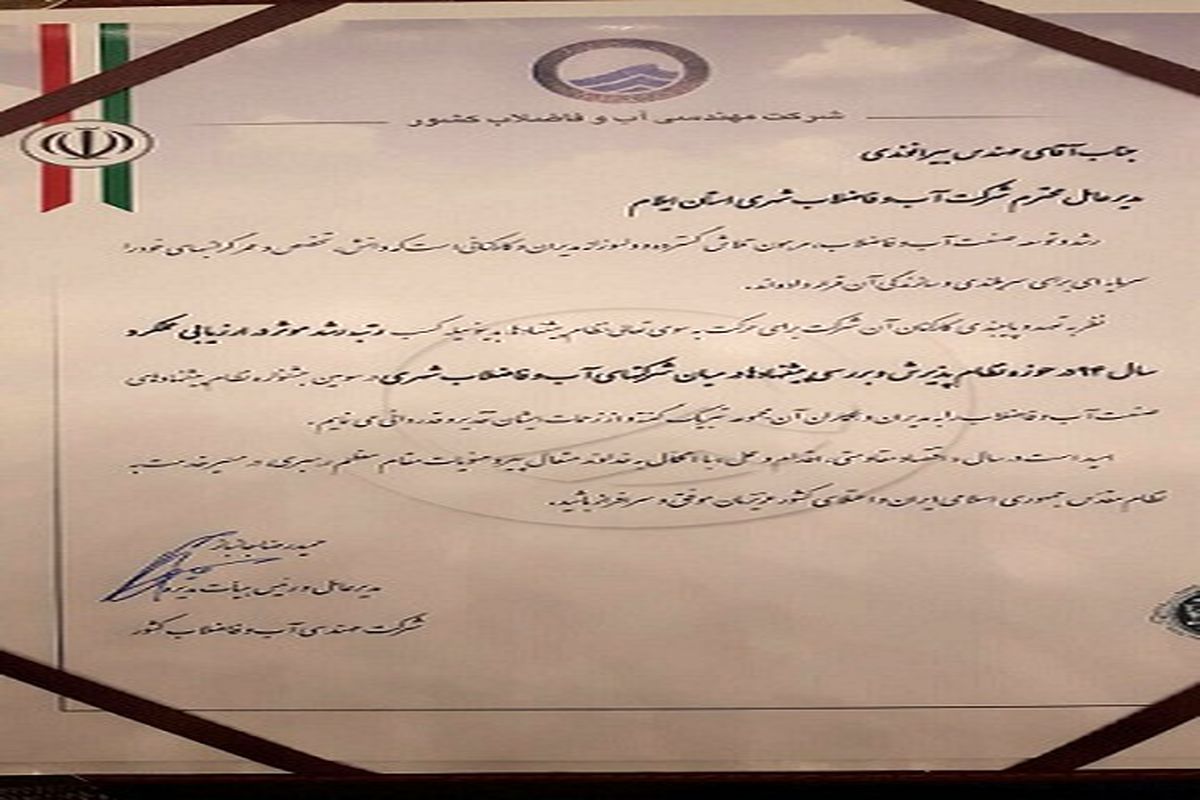 شرکت مهندسی آب و فاضلاب کشور
جناب آقای مهندس بیرانوندی
مدیرعامل محترم شرکت آب و فاضلاب شهری استان ایلام
رشد و توسعه صنعت آب و فاضلاب، مرهون تلاش گسترده و دلسوزانه مدیران و کارکنانی است که دانش، تخصص و عمر گرانبهای خود را
سرمایه ای برای سربلندی و سازندگی آن قرار داده‌اند.
نظر به تعهد و پایبندی کارکنان آن شرکت برای حرکت به سوی تعالی نظام پیشنهادها، بدینوسیله کسب رتبه رشد موثر در ارزیابی عملکرد
سال ۹۴ در حوزه نظام پذیرش و بررسی پیشنهادها در میان شرکتهای آب و فاضلاب شهری در سومین جشنواره نظام پیشنهادهای
صنعت آب و فاضلاب را به مدیران و همکاران آن مجموعه تبریک گفته و از زحمات ایشان تقدیر و قدردانی می نمایم.
امید است در سال «اقتصاد مقاومتی، اقدام و عمل»، با اتکال به خداوند متعال و پیرو منویات مقام معظم رهبری در مسیر خدمت به
نظام مقدس جمهوری اسلامی ایران و اعتلای کشور عزیزمان موفق و سرافراز باشید.
حمیدرضا جانباز
مدیرعامل و رئیس هیات مدیره
شرکت مهندسی آب و فاضلاب کشور